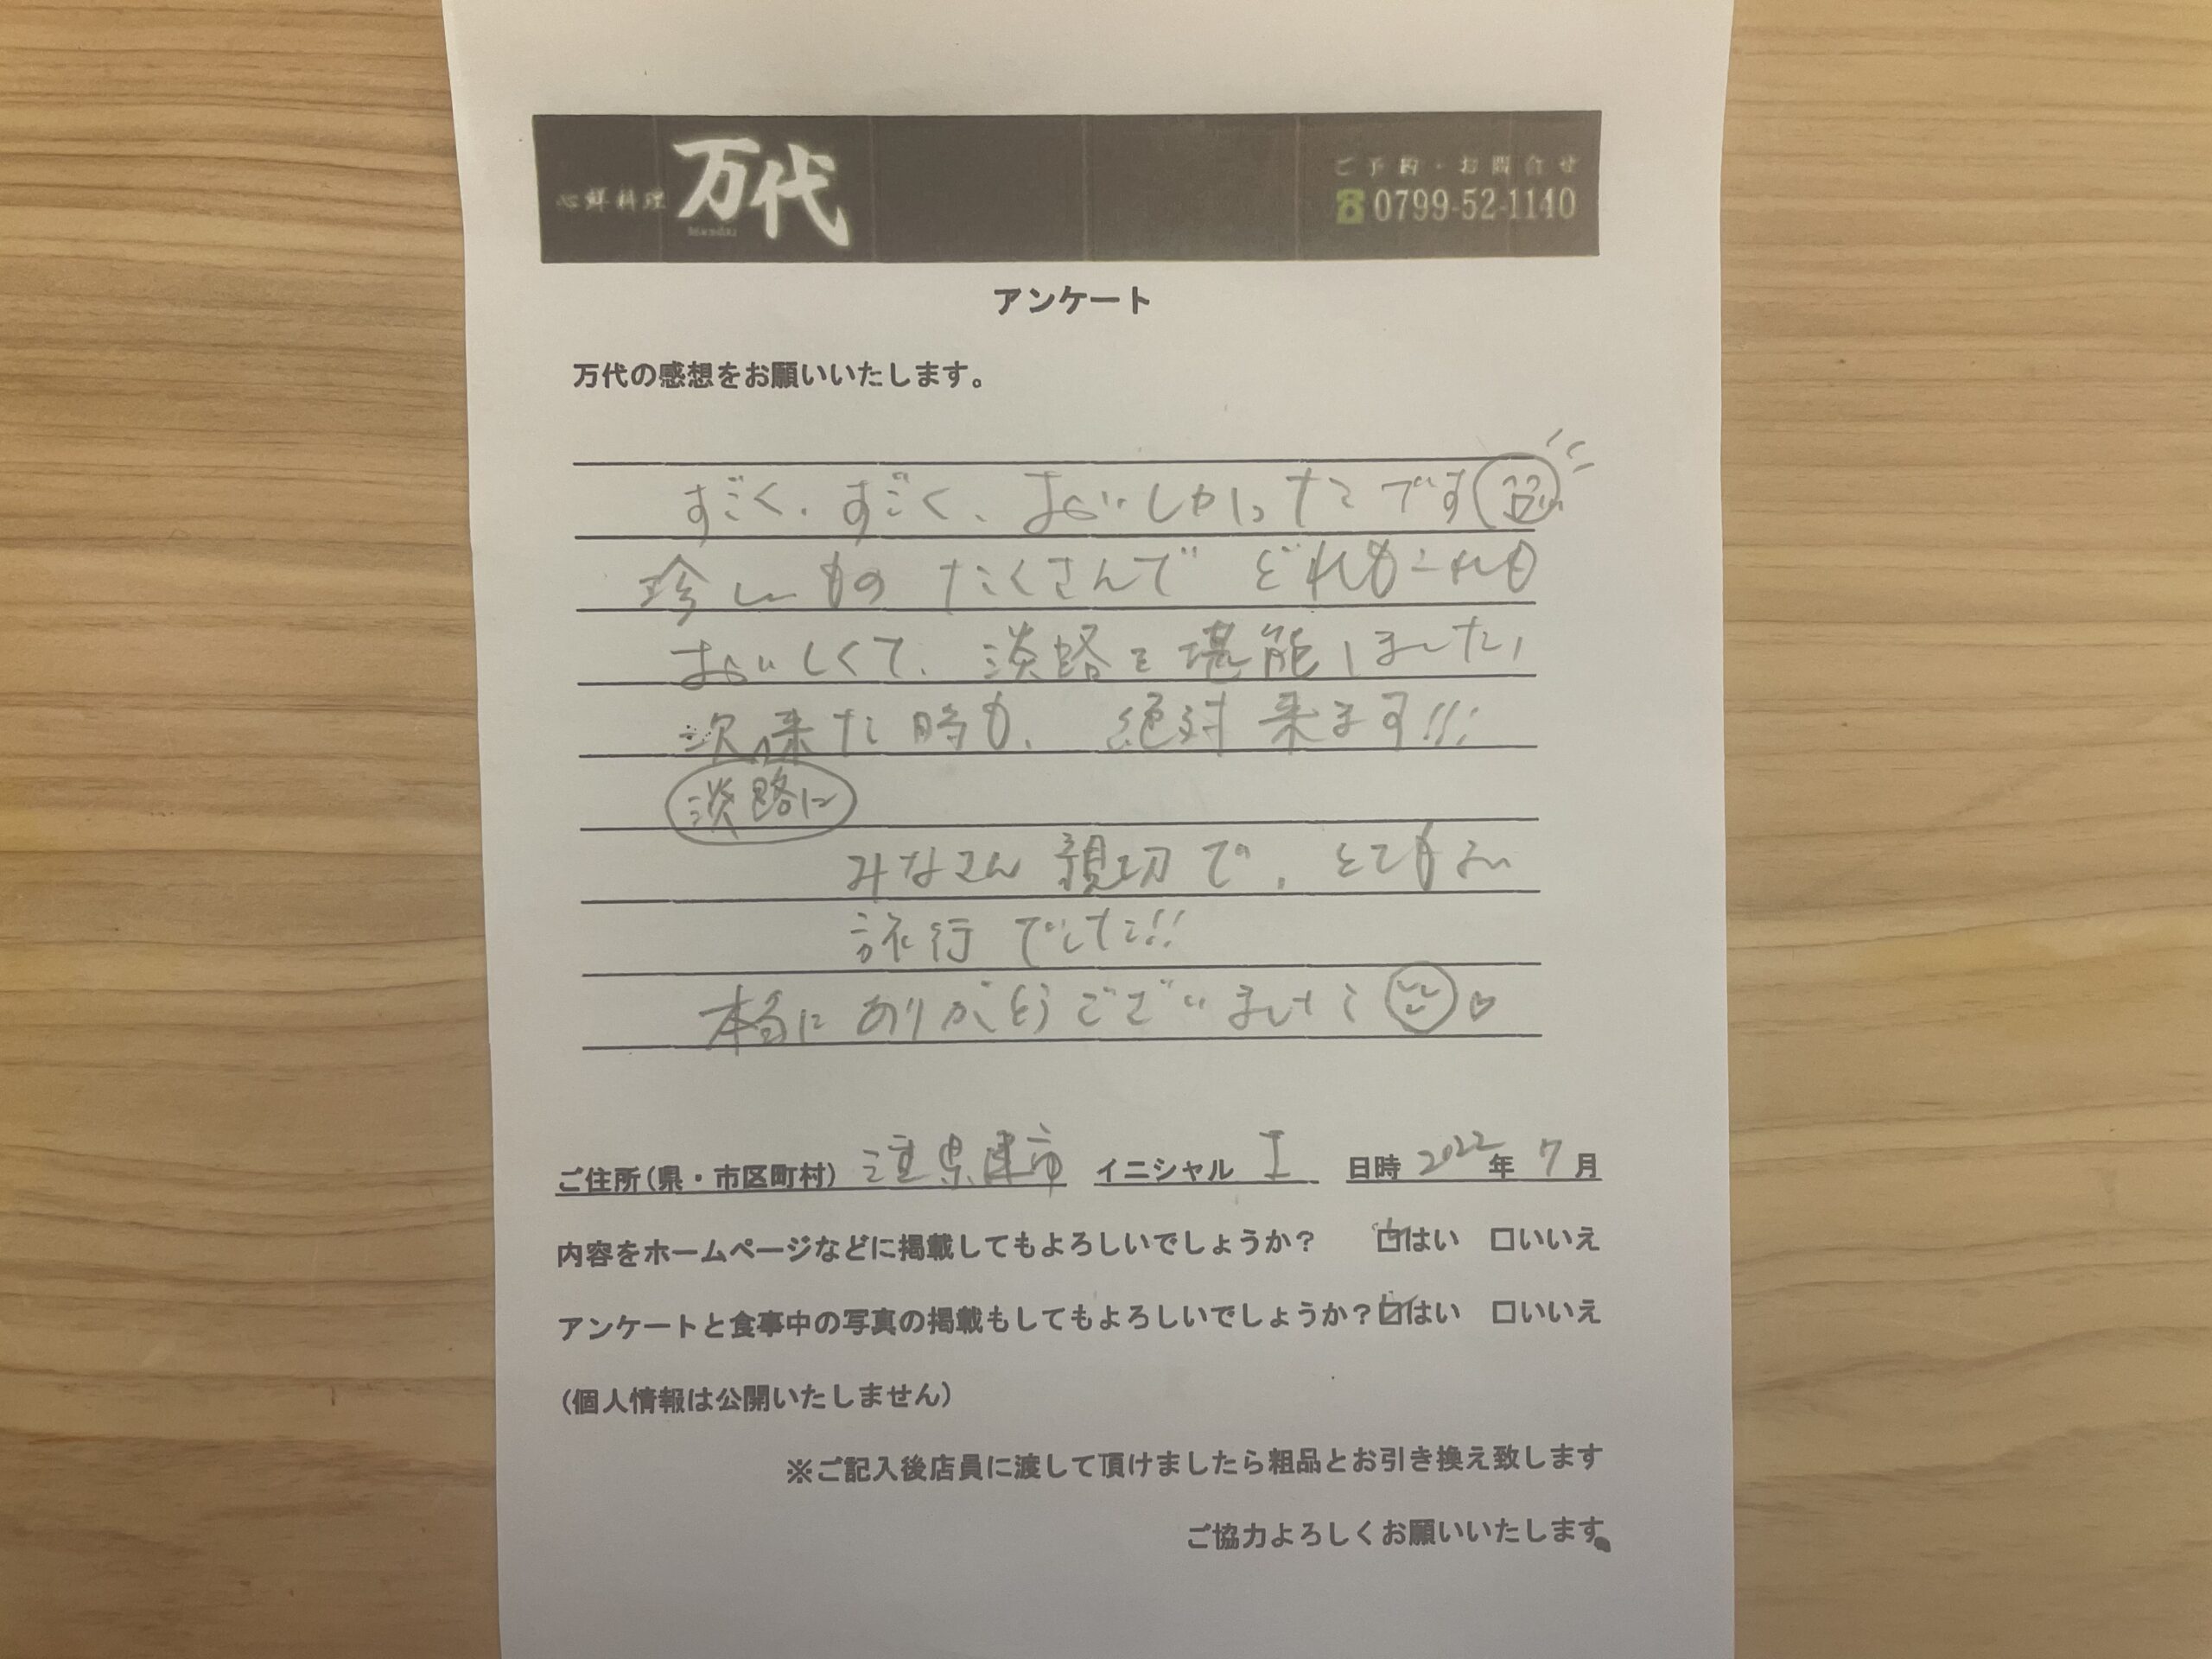 心鮮料理 万代
Mandai
ご予約・お問合せ
☎0799-52-1140
アンケート
万代の感想をお願いいたします。
すごく、すごく、おいしかったです
珍しいもの たくさんで どれもこれも
おいしくて、淡路を堪能しました!
次、来た時も、絶対来ます!!!
淡路に
みなさん親切で、とてもよい
旅行でした!!
本当にありがとうございました
ご住所(県・市区町村) 県 市 イニシャル I 日時 2022年 7月
内容をホームページなどに掲載してもよろしいでしょうか? ☑はい □いいえ
アンケートと食事中の写真の掲載もしてもよろしいでしょうか?☑はい □いいえ
(個人情報は公開いたしません)
※ご記入後店員に渡して頂けましたら粗品とお引き換え致します
ご協力よろしくお願いいたします。